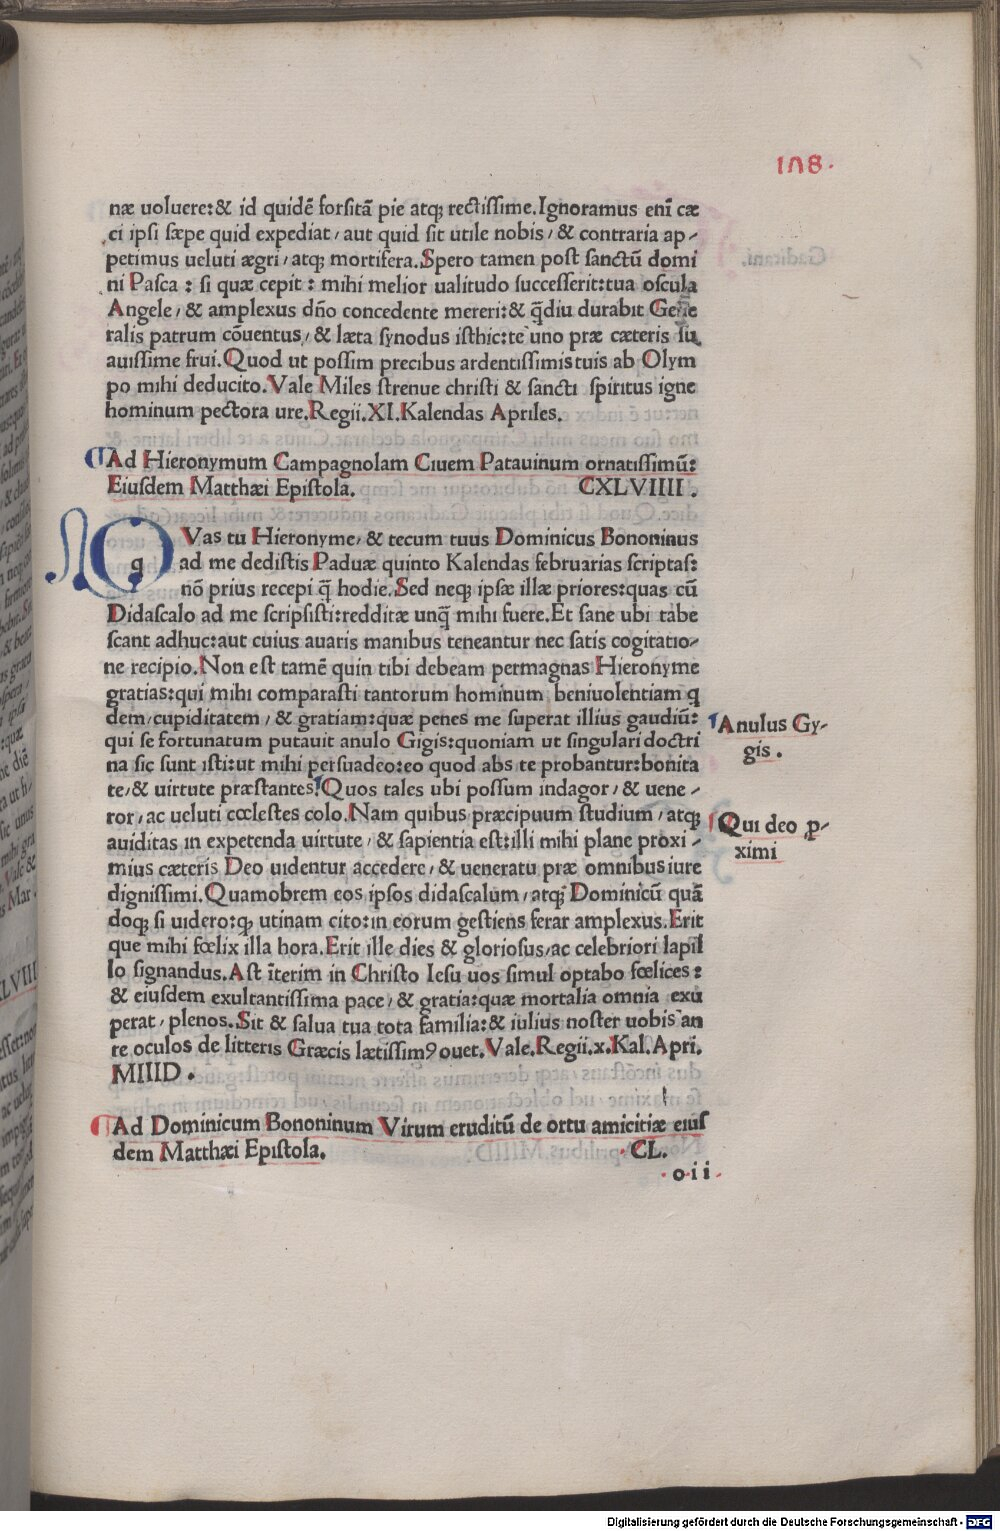 108.
næ uoluere:& id quidẽ forsitã pie atq; rectissime.Ignoramus eni cæ
ci ipsi sæpe quid expediat/aut quid sit utile nobis/& contraria ap-
petimus ueluti ægri/atq; mortifera.Spero tamen post sanctũ domi
ni Pasca : si quæ cepit : mihi melior ualitudo successerit:tua oscula
Angele/& amplexus dño concedente mereri:& q̃diu durabit Gene
ralis patrum cõuentus/& læta synodus isthic:te uno præ cæteris su
auissime frui.Quod ut possim precibus ardentissimis tuis ab Olym
po mihi deducito.Vale Miles strenue christi & sancti spiritus igne
hominum pectora ure.Regii.XI.Kalendas Apriles.
Ad Hieronymum Campagnolam Ciuem Patauinum ornatissimũ:
Eiusdem Matthæi Epistola. CXLVIIII.
QVas tu Hieronyme/& tecum tuus Dominicus Bononinus
q ad me dedistis Paduæ quinto Kalendas februarias scriptas:
nõ prius recepi q̃ hodie.Sed neq; ipsæ illæ priores:quas cũ
Didascalo ad me scripsisti:redditæ unq̃ mihi fuere.Et sane ubi tabe
scant adhuc:aut cuius auaris manibus teneantur nec satis cogitatio-
ne recipio.Non est tamẽ quin tibi debeam permagnas Hieronyme
gratias:qui mihi comparasti tantorum hominum beniuolentiam q
dem/cupiditatem/& gratiam:quæ penes me superat illius gaudiũ:
qui se fortunatum putauit anulo Gigis:quoniam ut singulari doctri
na sic sunt isti:ut mihi persuadeo:eo quod abs te probantur:bonita
te/& uirtute præstantes.Quos tales ubi possum indagor/& uene-
ror/ac ueluti cœlestes colo.Nam quibus præcipuum studium/atq;
auiditas in expetenda uirtute/& sapientia est:illi mihi plane proxi-
mius cæteris Deo uidentur accedere/& ueneratu præ omnibus iure
dignissimi.Quamobrem eos ipsos didascalum/atq; Dominicũ quã
doq; si uidero:q; utinam cito:in eorum gestiens ferar amplexus.Erit
que mihi fœlix illa hora.Erit ille dies & gloriosus/ac celebriori lapil
lo signandus.Ast ĩterim in Christo Iesu uos simul optabo fœlices:
& eiusdem exultantissima pace/& gratia:quæ mortalia omnia exu
perat/plenos.Sit & salua tua tota familia:& iulius noster uobis an
te oculos de litteris Græcis lætissimꝰ ouet.Vale.Regii.x.Kal.Apri.
MIIID.
Ad Dominicum Bononinum Virum eruditũ de ortu amicitiæ eius
dem Matthæi Epistola. CL.
o ii
Anulus Gy-
gis.
Qui deo ꝓ-
ximi
Digitalisierung gefördert durch die Deutsche Forschungsgemeinschaft - DFG